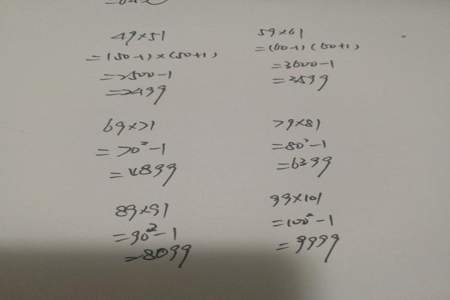 49×51
=(50-1)×(50+1)
=2500-1
=2499
59×61
=(60-1)(60+1)
=3600-1
=3599
69×71
=70²-1
=4899
79×81
=80²-1
=6399
89×91
=90²-1
=8099
99×101
=100²-1
=9999